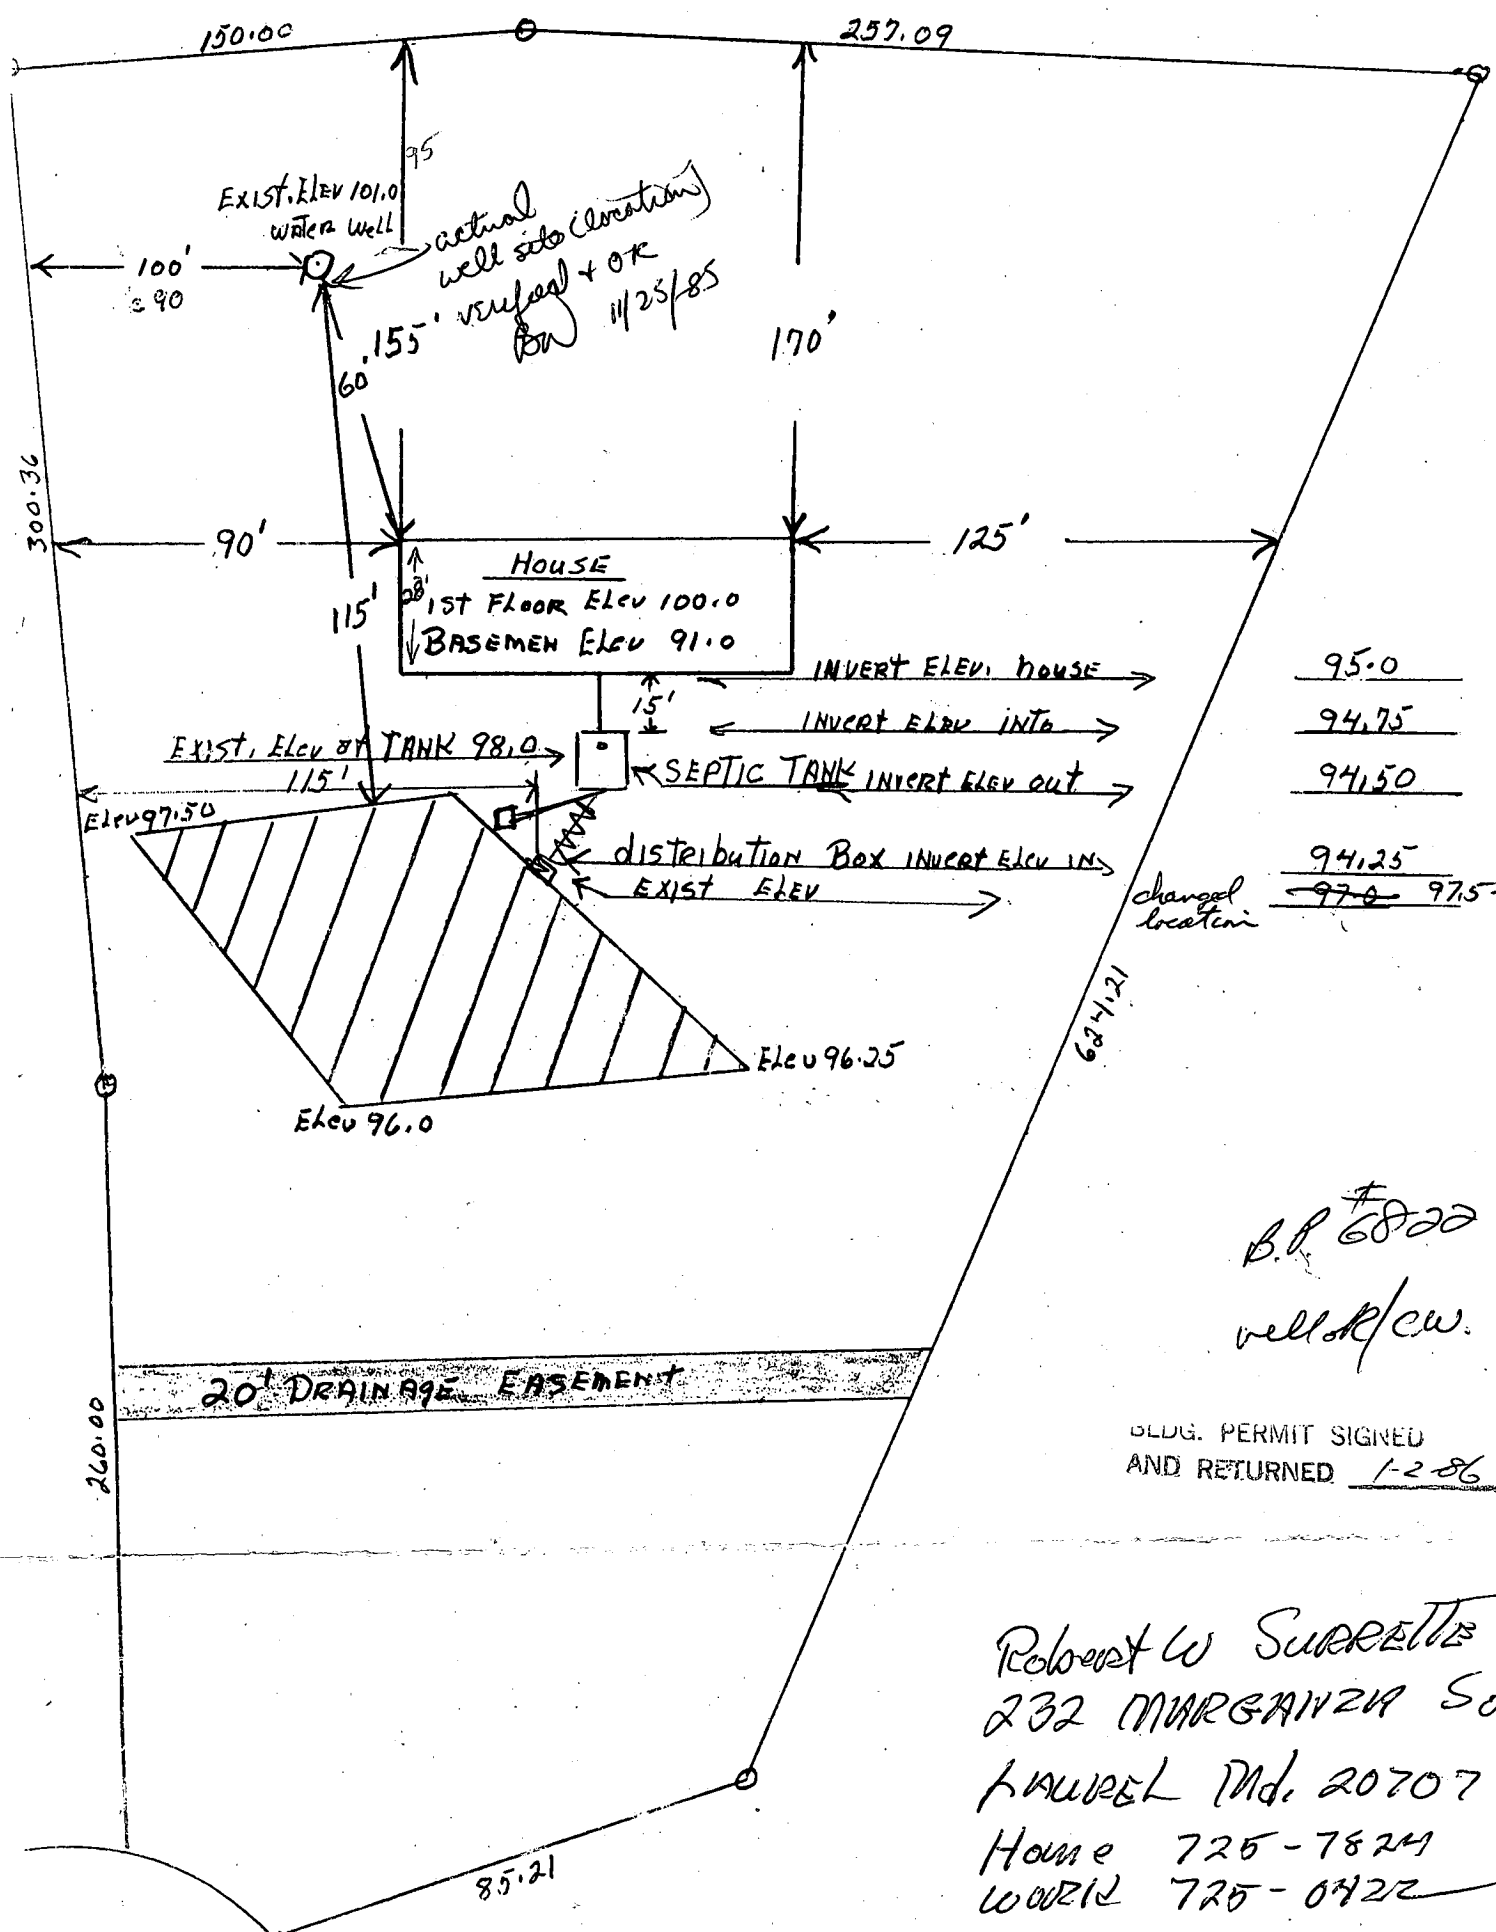 150.00
257.09
95
EXIST. ELEV 101.0
WATER WELL
actual
well site (location)
verified + OK
BW 11/25/85
100'
90
155'
60'
170'
300.36
90'
125'
115'
HOUSE
28'
1ST FLOOR ELEV 100.0
BASEMEN ELEV 91.0
INVERT ELEV. HOUSE 95.0
15'
INVERT ELEV INTO 94.75
EXIST. ELEV AT TANK 98.0
SEPTIC TANK INVERT ELEV OUT 94.50
115'
Elev 97.50
distribution Box INVERT ELEV IN 94.25
EXIST ELEV
changed
location
97.0 97.5
624.21
Elev 96.25
Elev 96.0
B.P. #6822
well ok/cw.
20' DRAINAGE EASEMENT
260.00
BLDG. PERMIT SIGNED
AND RETURNED 1-2-86
Robert W SURRETTE
232 MARGANZA So
LAUREL Md. 20707
Home 725-7824
WORK 725-0422
85.21